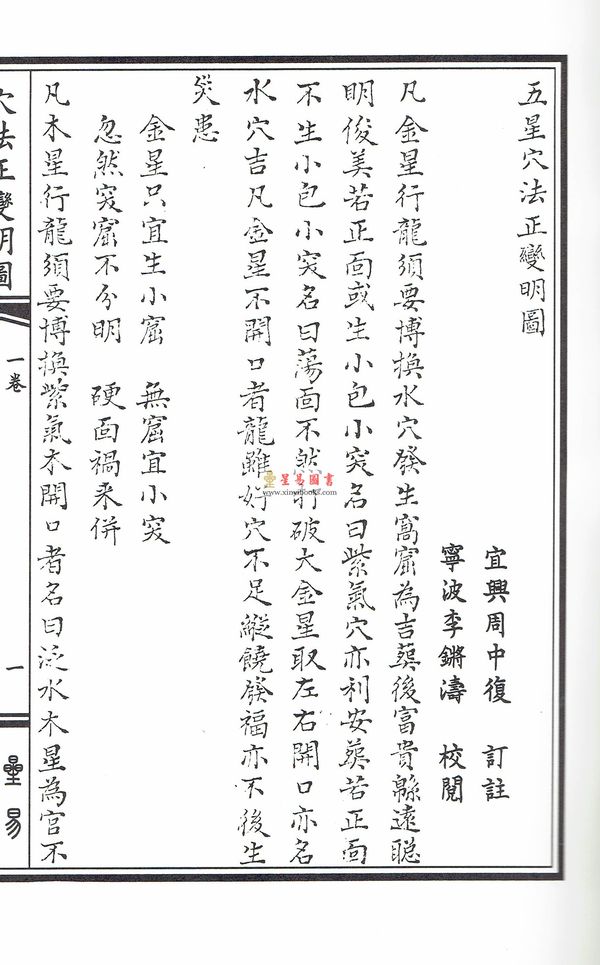 五星穴法正變明圖
宜興周中復 訂註
寧波李鏘濤 校閱
凡金星行龍須要博換水穴發生窩窟為吉葬後富貴緜遠聪
明俊美若正面或生小包小突名曰紫氣穴亦利安葬若正面
不生小包小突名曰蕩面不然打破大金星取左右開口亦名
水穴吉凡金星不開口者龍雖好穴不足縱饒發福亦不後生
災患
金星只宜生小窟 無窟宜小突
忽然突窟不分明 硬面禍来併
凡木星行龍須要博換紫氣木開口者名曰泛水木星為官不
穴法正變明圖
一卷
一
星易
星易圖書
www.xinyibooks.com